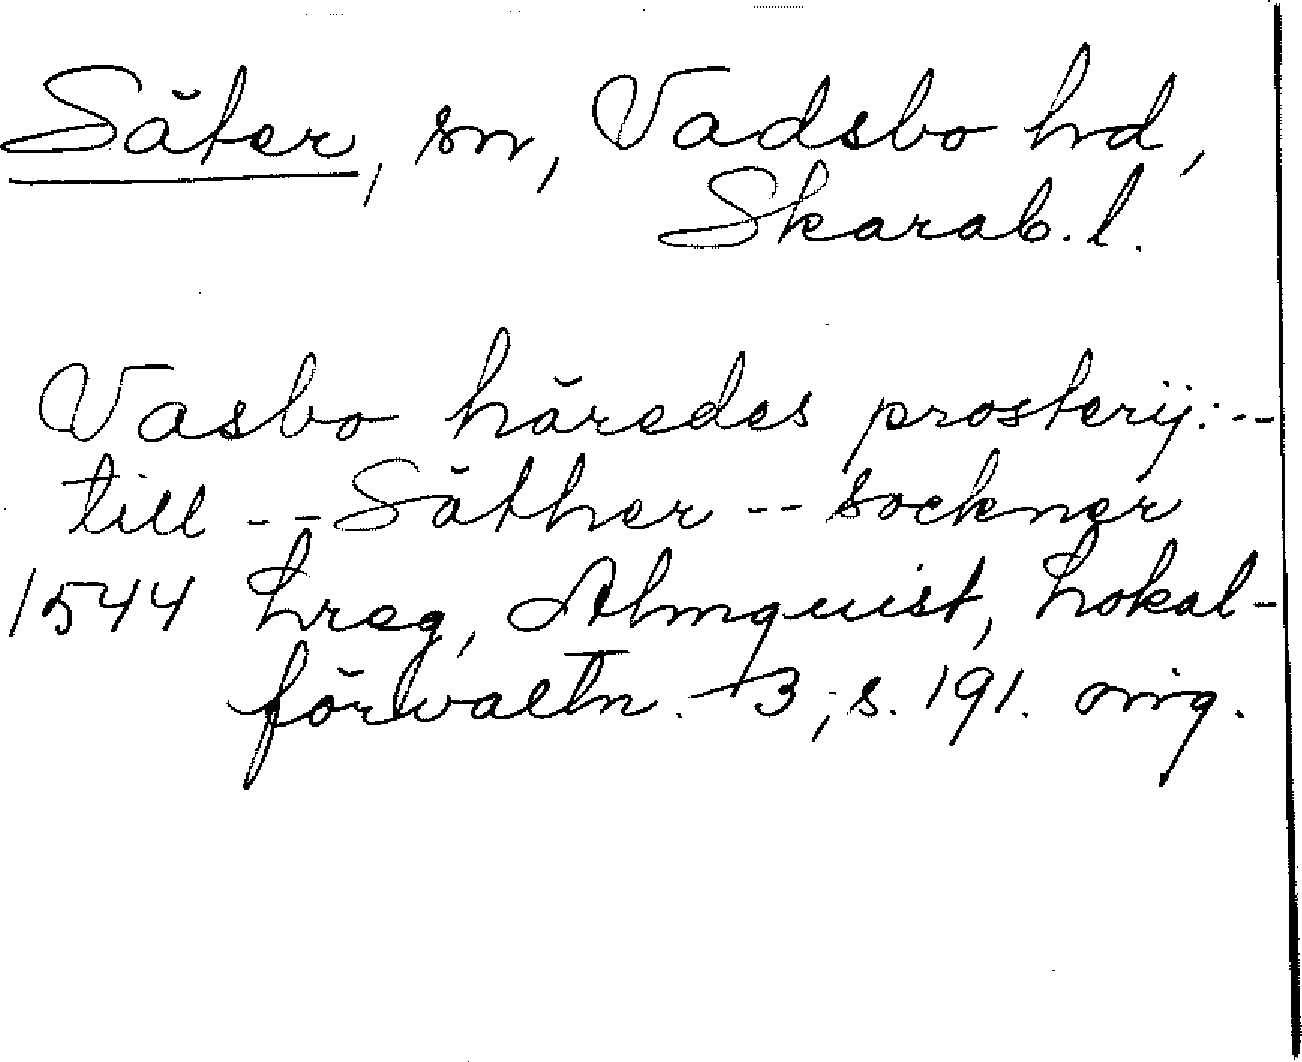 Säter, sn, Vadsbo hd,
Skarab. l.
Vasbo häredes prosterij: --
till -- Säther -- socknar
1544 Lreg, Almquist, Lokal-
förvaltn. 3, s. 191. orig.